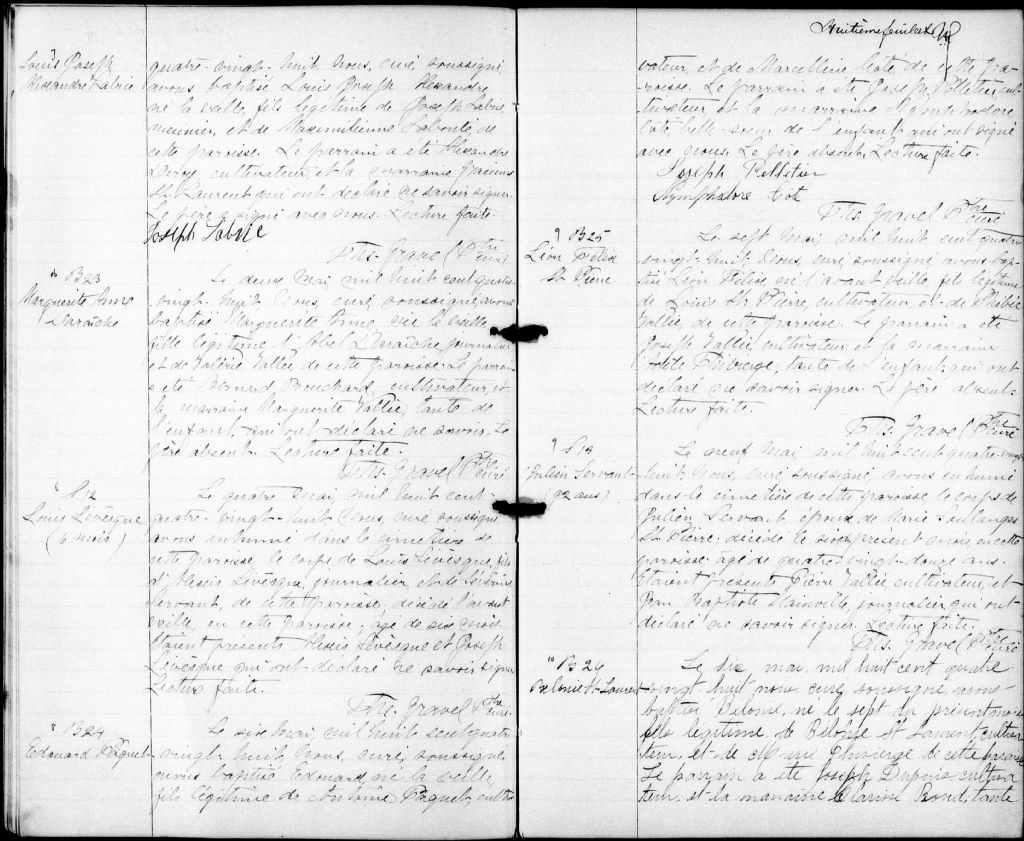 Louis Joseph
Alexandre Labrie
quatre-vingt-huit, Nous, curé, soussigné,
avons baptisé Louis Joseph Alexandre,
né la veille, fils légitime de Joseph Labrie,
meunier, et de Maximilienne Labonté, de
cette paroisse. Le parrain a été Alexandre
cultivateur, et la marraine
St. Laurent qui ont déclaré ne savoir signer.
Le père a signé avec nous. Lecture faite.
Joseph Labrie
Ths. Gravel Ptre curé
B23
Marguerite Anne
Daraîche
Le deux mai, mil huit cent quatre-
vingt-huit, Nous, curé, soussigné, avons
baptisé Marguerite Anne, née la veille,
fille légitime d'Abel Daraîche, journalier
et de Valérie Vallée, de cette paroisse. Le parrain
a été Bernard Bouchard, cultivateur, et
la marraine Marguerite Vallée, tante de
l'enfant, qui ont déclaré ne savoir. Le
père absent. Lecture faite.
Ths. Gravel Ptre curé
S12
Louis Lévesque
(6 mois)
Le quatre mai, mil huit cent
quatre-vingt-huit, Nous, curé, soussigné,
avons inhumé dans le cimetière de
cette paroisse, le corps de Louis Lévesque, fils
d'Alexis Lévesque, journalier, et de Séverine
Servant, de cette paroisse, décédé l'avant
veille, en cette paroisse, âgé de six mois.
Étaient présents Alexis Lévesque et Joseph
Lévesque qui ont déclaré ne savoir signer
Lecture faite.
Ths. Gravel Ptre curé.
B24
Edouard Paquet
Le six mai, mil huit cent quatre
vingt-huit, Nous, curé, soussigné
avons baptisé Edouard, né la veille,
fils légitime de Antoine Paquet, culti-
Huitième feuillet
vateur, et de Marcelline Coté de cette pa-
roisse. Le parrain a été Joseph Pelletier cul-
tivateur et la marraine Nymphodore
Coté, belle-soeur de l'enfant qui ont signé
avec nous. Le père absent. Lecture faite.
Joseph Pelletier
Nymphodore Coté
Ths. Gravel Ptre curé
B25
Léon Félix
St. Pierre
Le sept mai, mil huit cent quatre
vingt-huit, Nous, curé, soussigné avons bap-
tisé Léon Félix, né l'avant veille fils légitime
de Louis St. Pierre, cultivateur et de Phébée
Vallée, de cette paroisse. Le parrain a été
Joseph Vallée, cultivateur, et la marraine
Thibierge, tante de l'enfant, qui ont
déclaré ne savoir signer. Le père absent.
Lecture faite.
Ths. Gravel Ptre curé
S13
Julien Servant
(92 ans)
Le neuf mai, mil huit cent quatre-vingt-
huit, Nous, curé soussigné, avons inhumé
dans le cimetière de cette paroisse, le corps de
Julien Servant, époux de Marie Soulanges
St. Pierre, décédé le sept présent mois, en cette
paroisse, âgé de quatre-vingt-douze ans.
Étaient présents Pierre Vallée, cultivateur, et
Jean Baptiste Mainville, journalier, qui ont
déclaré ne savoir signer. Lecture faite.
Ths. Gravel Ptre curé
B26
St Laurent
Le dix mai, mil huit cent quatre
vingt huit, nous curé soussigné, avons
baptisé né le sept du présent mois
fils légitime de St Laurent, cultiva-
teur, et de Thivierge de cette paroisse
Le parrain a été Joseph Dupuis, cultiva
teur, et la marraine Clarisse Bond, tante